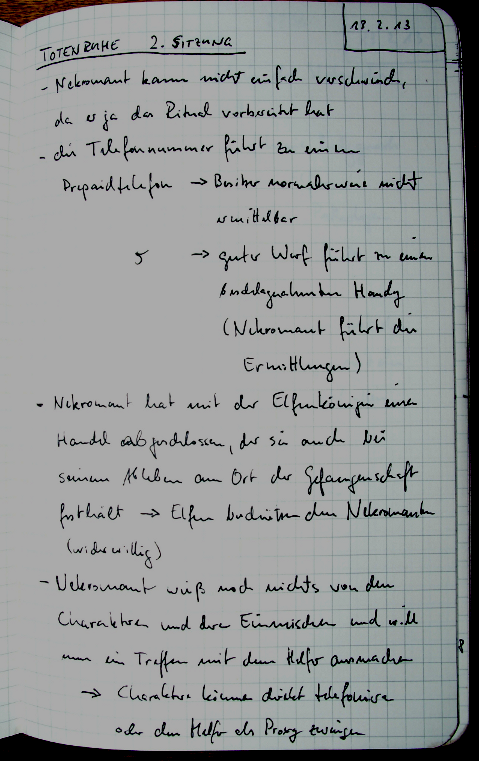 18.2.13
TOTENRUHE 2. SITZUNG
- Nekromant kann nicht einfach verschwinden,
da er ja das Ritual vorbereitet hat
- die Telefonnummer führt zu einem
Prepaidtelefon → Besitzer normalerweise nicht
ermittelbar
→ guter Wurf führt zu einem
beschlagnahmten Handy
(Nekromant führt die
Ermittlungen)
- Nekromant hat mit der Elfenkönigin einen
Handel abgeschlossen, der sie auch bei
seinem Ableben am Ort der Gefangenschaft
festhält → Elfen beschützen den Nekromanten
(widerwillig)
- Nekromant weiß noch nichts von den
Charakteren und deren Einmischen und will
nun ein Treffen mit dem Helfer ausmachen
→ Charaktere können direkt telefonieren
oder den Helfer als Proxy zwingen
8